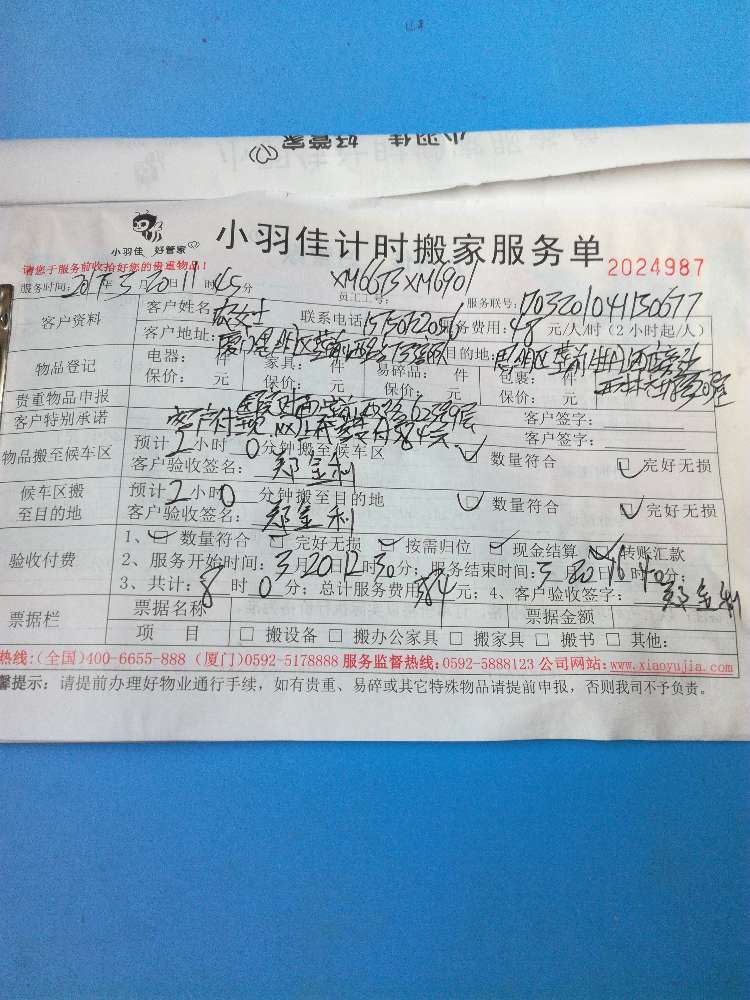 小羽佳 好管家
小羽佳 好管家
小羽佳计时搬家服务单
2024987
请您于服务前收拾好您的贵重物品!
服务时间: 2017年3月20日11时45分 员工工号: XM6613 XM6901 服务联号: 1703201041150677
客户资料 客户姓名: 女士 联系电话 15750122096 服务费用: 48 元/人/时(2小时起/人)
客户地址: 厦门思明区 目的地: 思明区
物品登记 电器: 件 家具: 件 易碎品: 件 包裹: 件
保价: 元 保价: 元 保价: 元 保价: 元
贵重物品申报 客户签字:
客户特别承诺 客户签字:
物品搬至候车区 预计 2 小时 0 分钟搬至候车区 数量符合 完好无损
客户验收签名: 郑金利
候车区搬至目的地 预计 2 小时 0 分钟搬至目的地 数量符合 完好无损
客户验收签名: 郑金利
验收付费 1、 数量符合 完好无损 按需归位 现金结算 转账汇款
2、服务开始时间: 3月20日12时30分; 服务结束时间: 3月20日16时40分;
3、共计: 8 时 0 分; 总计服务费用 384 元; 4、客户验收签字: 郑金利
票据栏 票据名称 票据金额
项 目 □ 搬设备 □ 搬办公家具 □ 搬家具 □ 搬书 □ 其他:
热线:(全国)400-6655-888 (厦门)0592-5178888 服务监督热线:0592-5888123 公司网站:www.xiaoyujia.com
馨提示: 请提前办理好物业通行手续, 如有贵重、易碎或其它特殊物品请提前申报, 否则我司不予负责。